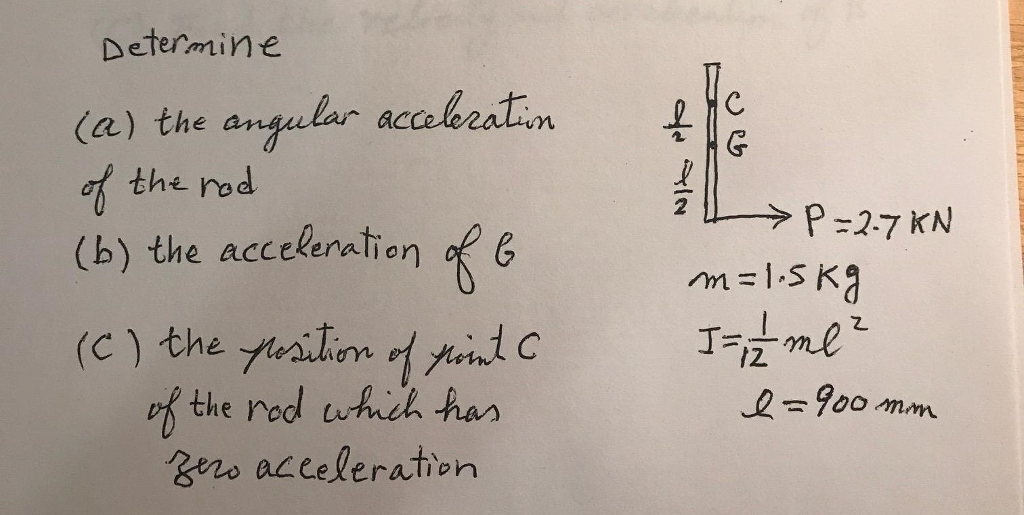 Determine
(a) the angular acceleration
of the rod
(b) the acceleration of G
(C) the position of point C
of the rod which has
zero acceleration
l/2
C
G
l/2
P = 2.7 KN
m = 1.5 Kg
I = 1/12 ml²
l = 900 mm